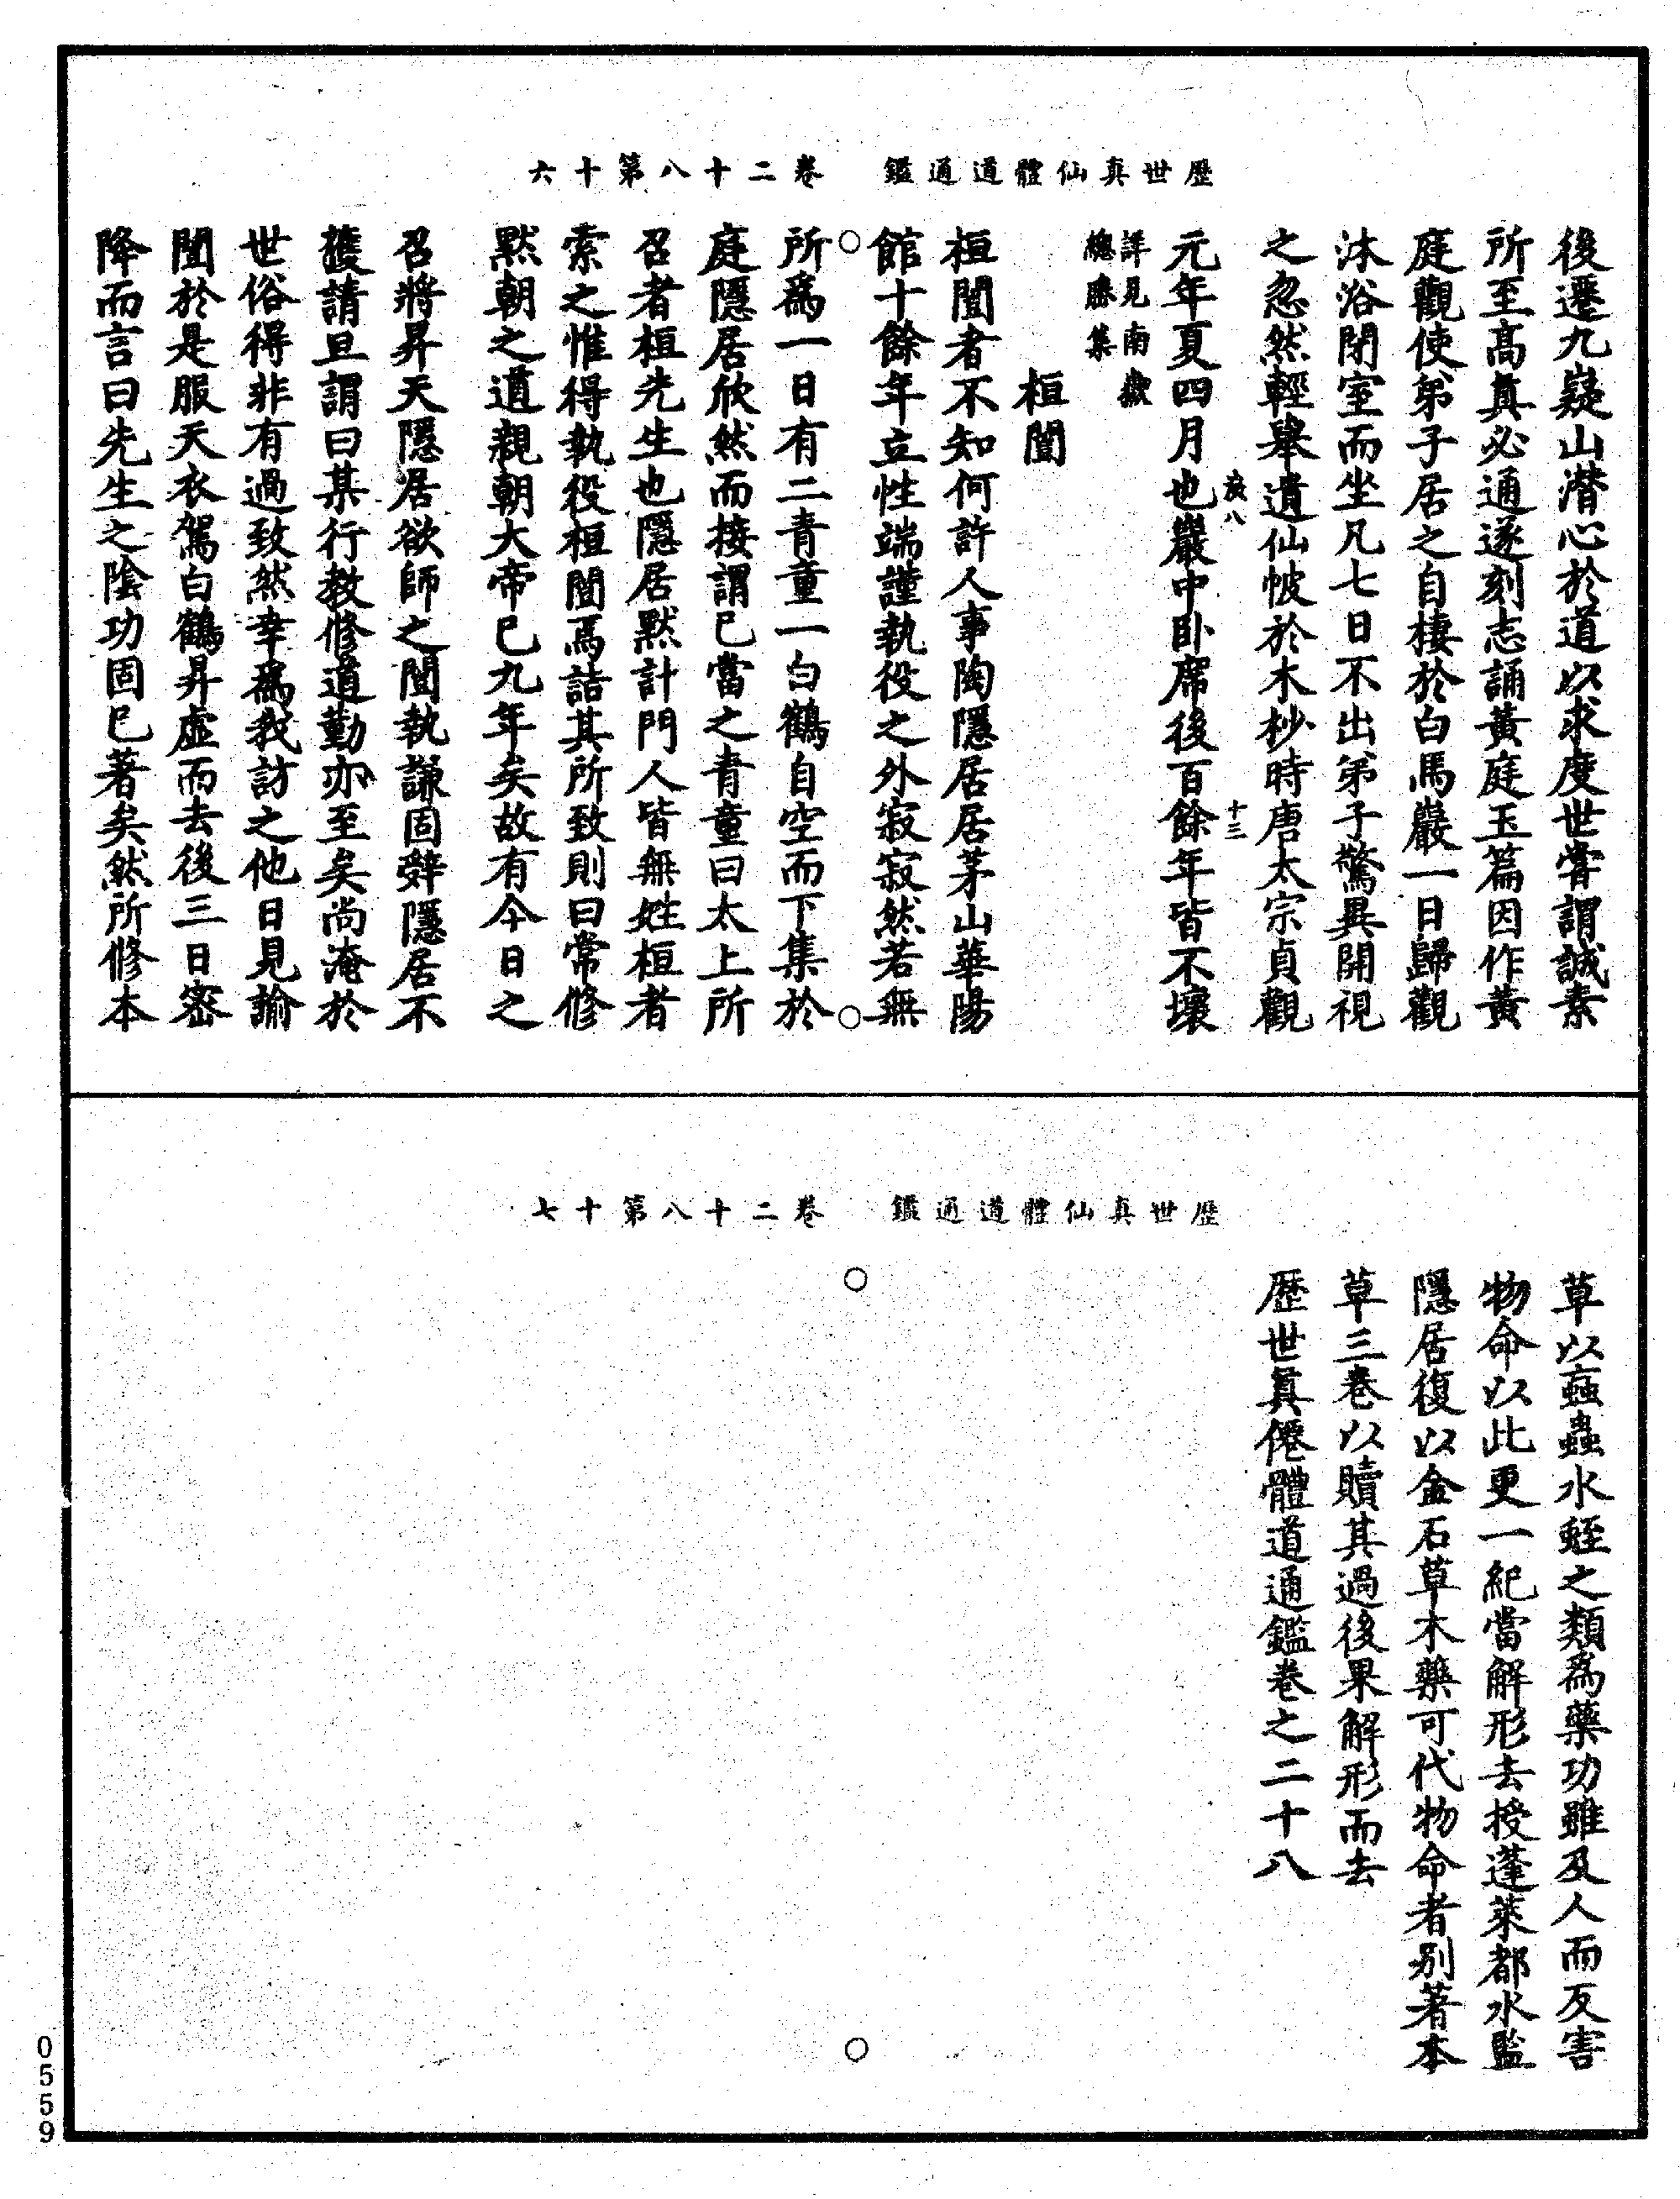 歷世真仙體道通鑑　卷二十八第十六
後遷九嶷山潛心於道以求度世嘗謂誠素
所至高真必通遂刻志誦黃庭玉篇因作黃
庭觀使弟子居之自棲於白馬巖一日歸觀
沐浴閉室而坐凡七日不出弟子驚異開視
之忽然輕舉遺仙帔於木杪時唐太宗貞觀
八
十三
元年夏四月也巖中卧席後百餘年皆不壞
詳見南嶽
總勝集
桓闓
桓闓者不知何許人事陶隱居居茅山華陽
館十餘年立性端謹執役之外寂寂然若無
所爲一日有二青童一白鶴自空而下集於
庭隱居欣然而接謂已當之青童曰太上所
召者桓先生也隱居默計門人皆無姓桓者
索之惟得執役桓闓焉詰其所致則曰常修
默朝之道親朝大帝已九年矣故有今日之
召將昇天隱居欲師之闓執謙固辭隱居不
獲請旦謂曰某行教修道勤亦至矣尚淹於
世俗得非有過致然幸爲我訪之他日見諭
闓於是服天衣駕白鶴昇虛而去後三日密
降而言曰先生之陰功固已著矣然所修本
歷世真仙體道通鑑　卷二十八第十七
草以蝱蟲水蛭之類爲藥功雖及人而反害
物命以此更一紀當解形去授蓬萊都水監
隱居復以金石草木藥可代物命者别著本
草三卷以贖其過後果解形而去
歷世真僊體道通鑑卷之二十八
0559